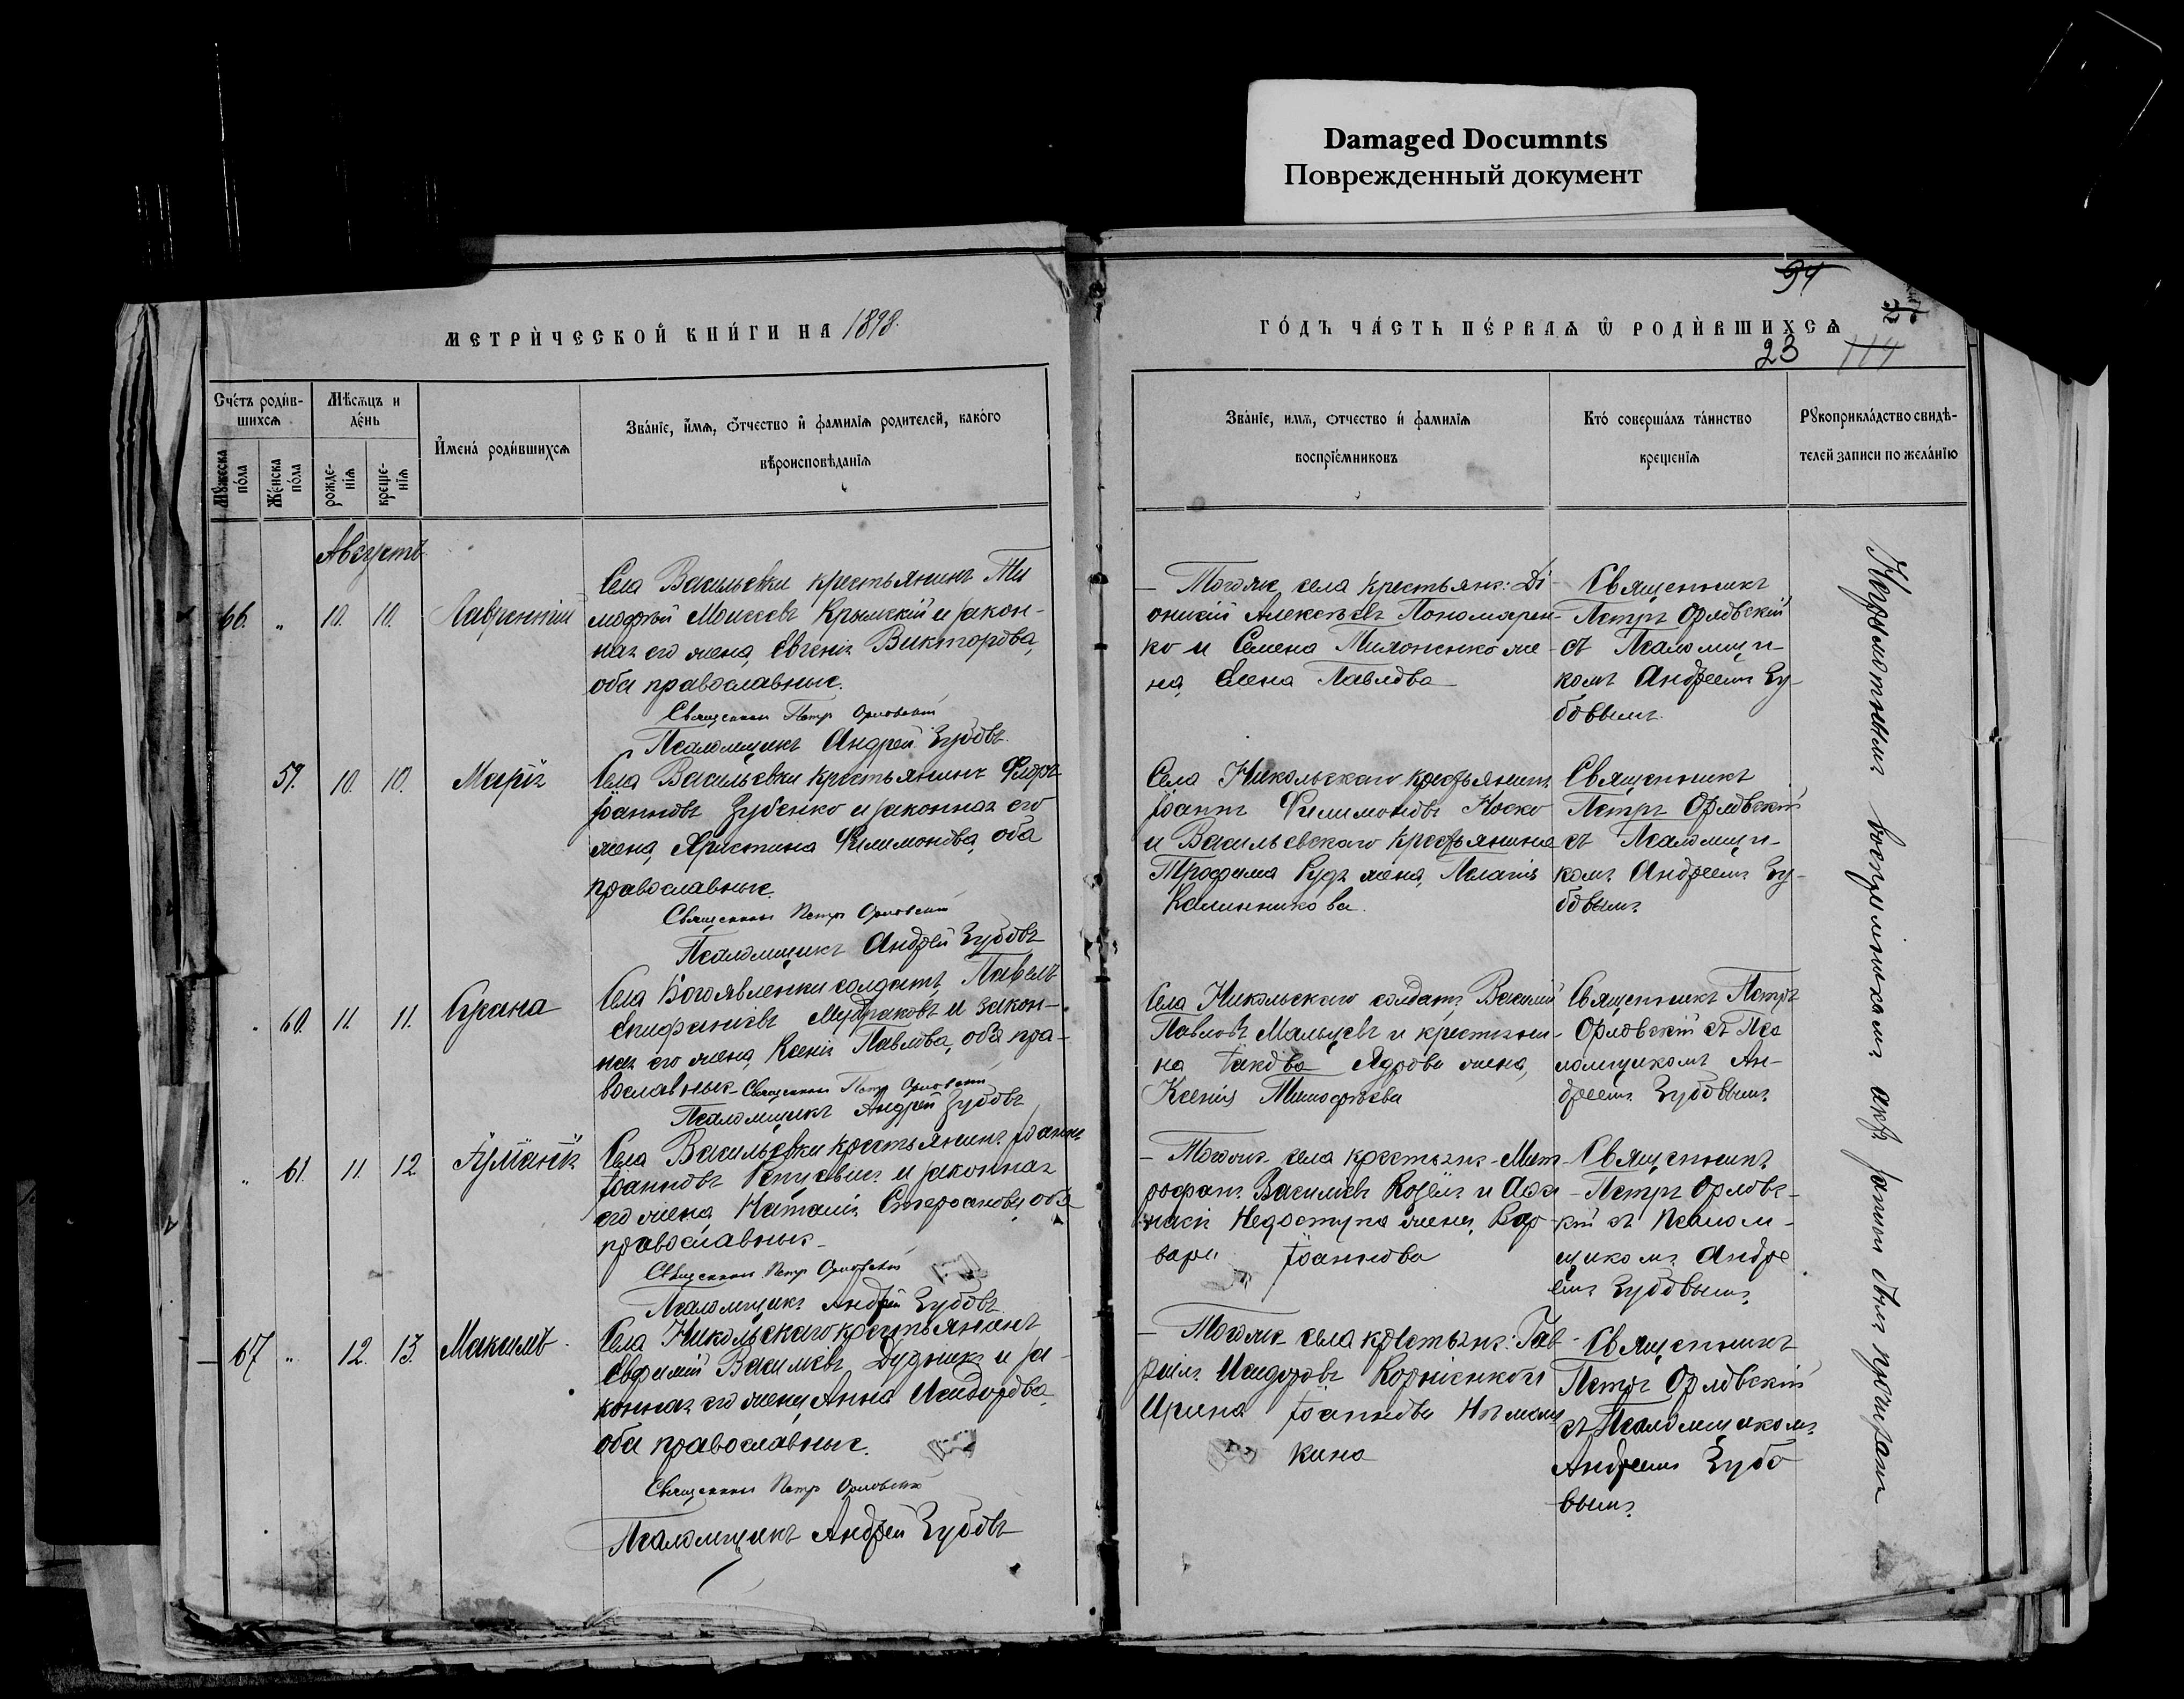 Damaged Documnts
Поврежденный документ
94
МЕТРИ́ЧЕСКОЙ КНИ́ГИ НА 1898.
ГО́ДЪ ЧА́СТЬ ПЕ́РВАѦ Ѿ РОДИ́ВШИХСѦ
23 114
Сче́тъ роди́в-
шихсѧ
Мѣ́сѧцъ и
де́нь
И҆мена̀ роди́вшихсѧ
Зва́нїе, и҆́мѧ, ѻ҆́тчество и҆ фами́лїѧ роди́телей, како́го
вѣроисповѣ́данїѧ
Мꙋ́жеска
по́ла
Же́нска
по́ла
рожде-
нїѧ
креще-
нїѧ
Зва́нїе, имѧ, ѻтчество и҆ фами́лїѧ
воспрїе́мниковъ
Кто̀ соверша́лъ та́инство
креще́нїѧ
Рꙋкоприкла́дство свидѣ́-
телей записи по жела́нїю
Августъ
66. " 10. 10. Лаврентій
Села Васильевки крестьянинъ Ти
мофей Моисеевъ Крымскій и закон-
ная его жена, Евгенія Викторова,
оба православные.
Священникъ Петръ Орловскій
Псаломщикъ Андрей Зубовъ
— Тогоже села крестьян: Ді-
онисій Алексѣевъ Пономарен-
ко и Семена Тихоненко же-
на, Елена Павлова
Священникъ
Петръ Орловскій
съ Псаломщи-
комъ Андреемъ Зу-
бовымъ.
59. 10. 10. Марія
Села Васильевки крестьянинъ Флоръ
Іоанновъ Зубенко и законная его
жена, Христина Филимонова, оба
православные.
Священникъ Петръ Орловскій
Псаломщикъ Андрей Зубовъ
Села Никольскаго крестьянинъ
Іоаннъ Филимоновъ Носко
и Васильевскаго крестьянина
Трофима Рудя жена, Пелагія
Калинникова.
Священникъ
Петръ Орловскій
съ Псаломщи-
комъ Андреемъ Зу-
бовымъ
60. 11. 11.
Села Богоявленки солдатъ Павелъ
Епифаніевъ и закон-
ная его жена, Ксенія Павлова, оба пра-
вославные - Священникъ Петръ Орловскій
Псаломщикъ Андрей Зубовъ
Села Никольскаго солдатъ Василій
Павловъ Мальцевъ и крестьяни-
на Іакова Ядрова жена,
Ксенія Тимофѣева
Священникъ Петръ
Орловскій съ Пса
ломщикомъ Ан-
дреемъ Зубовымъ
" 61. 11. 12. Іуліанія
Села Васильевки крестьянинъ Іоаннъ
Іоанновъ и законная
его жена, Наталія Стефанова, оба
православные -
Священникъ Петръ Орловскій
Псаломщикъ Андрей Зубовъ
— Тогоже села крестьян - Мит-
рофанъ Василіевъ Козёлъ и Аѳа
насія Недоступа жена, Вар-
вара Іоаннова
Священникъ
Петръ Орловс-
кій съ Псалом-
щикомъ Андре
емъ Зубовымъ
67 " 12. 13. Максимъ
Села Никольскаго крестьянинъ
Евфимій Василіевъ Дудникъ и за-
конная его жена, Анна Исидорова,
оба православные.
Священникъ Петръ Орловскій
Псаломщикъ Андрей Зубовъ
— Тогоже села крестьян: Гав-
ріилъ Исидоровъ Корніенко и
Ирина Іоаннова
кина
Священникъ
Петръ Орловскій
съ Псаломщикомъ
Андреемъ Зубо
вымъ
Неграмотнымъ воспріемникамъ актъ записи былъ прочитанъ